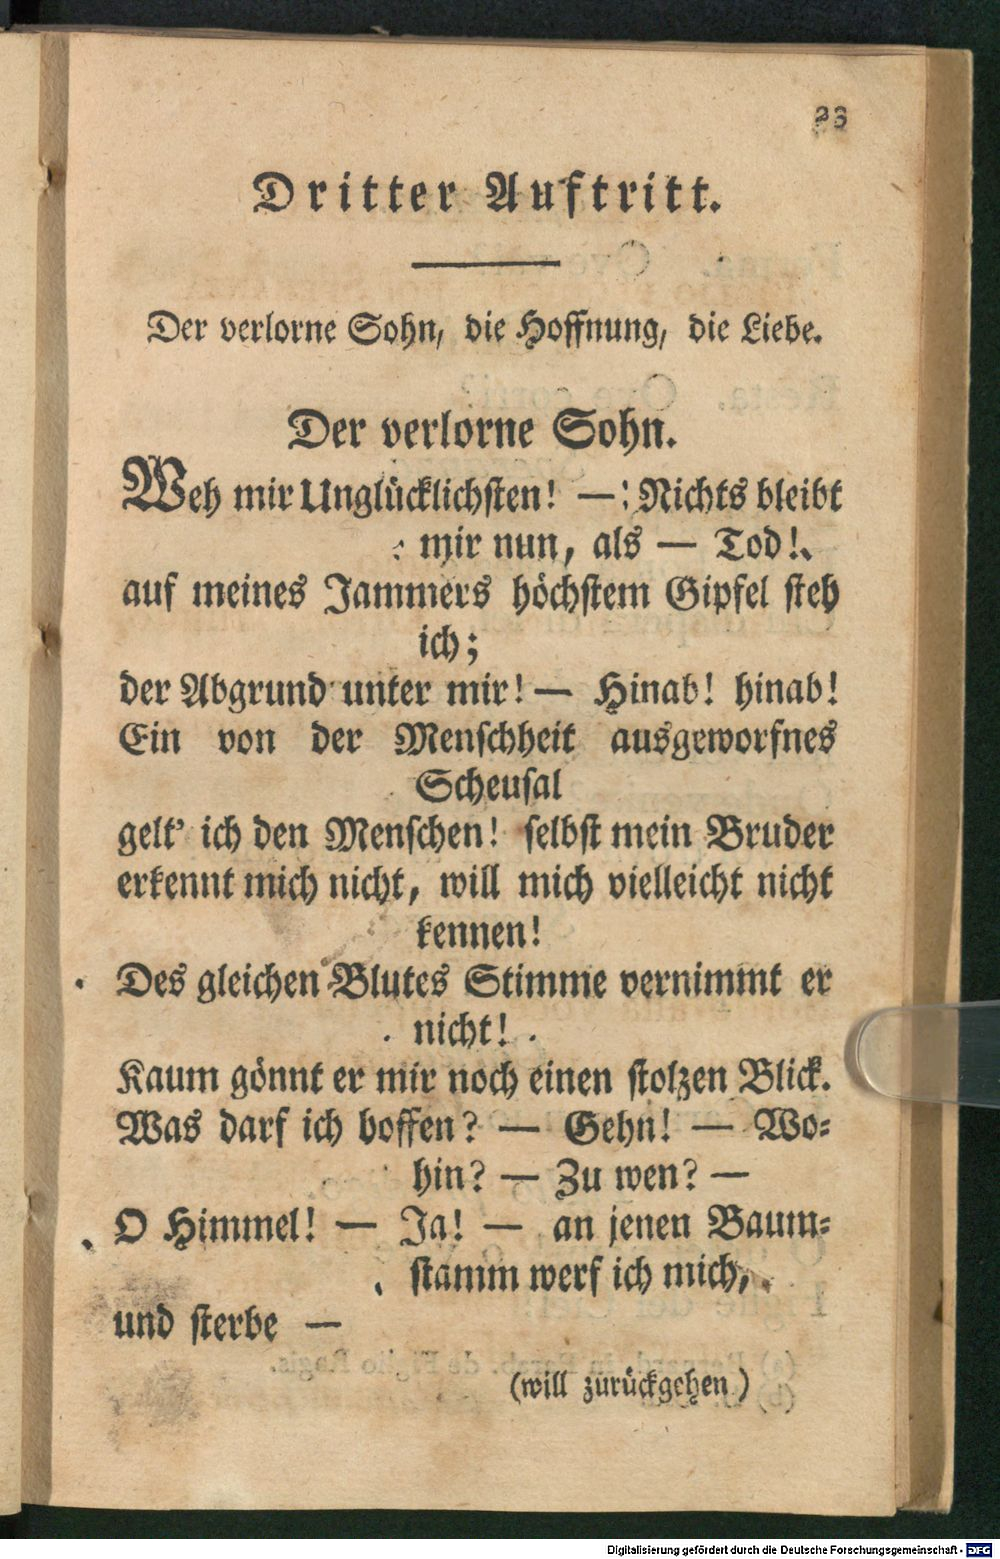 23
Dritter Auftritt.
Der verlorne Sohn, die Hoffnung, die Liebe.
Der verlorne Sohn.
Weh mir Unglücklichsten! — Nichts bleibt
mir nun, als — Tod!
auf meines Jammers höchstem Gipfel steh
ich;
der Abgrund unter mir! — Hinab! hinab!
Ein von der Menschheit ausgeworfnes
Scheusal
gelt' ich den Menschen! selbst mein Bruder
erkennt mich nicht, will mich vielleicht nicht
kennen!
Des gleichen Blutes Stimme vernimmt er
nicht!
Kaum gönnt er mir noch einen stolzen Blick.
Was darf ich hoffen? — Gehn! — Wo-
hin? — Zu wen? —
O Himmel! — Ja! — an jenen Baum-
stamm werf ich mich,
und sterbe —
(will zurückgehen)
Digitalisierung gefördert durch die Deutsche Forschungsgemeinschaft - DFG